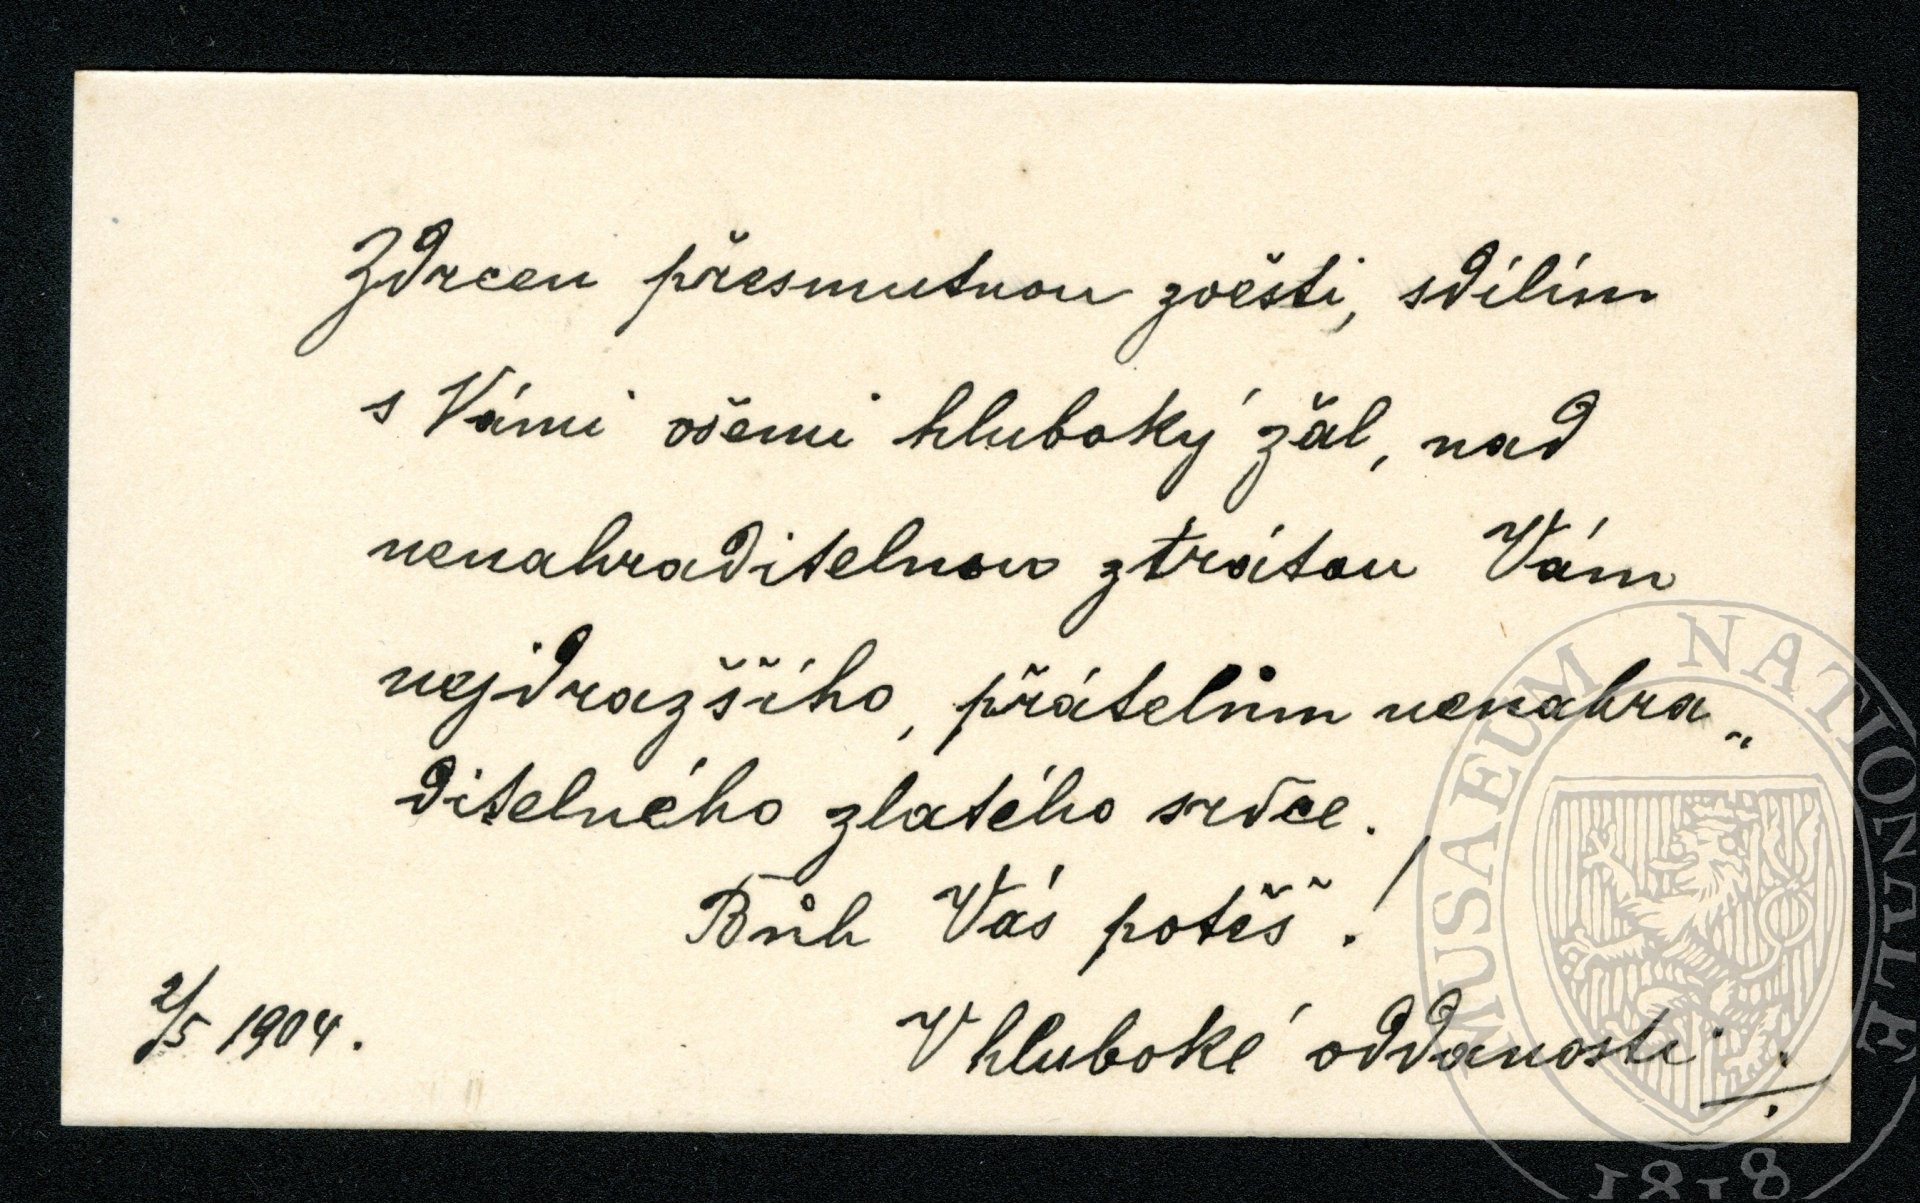 Zdrcen přesmutnou zvěsti, sdílím
s Vámi všemi hluboký žál, nad
nenahraditelnou ztrátou Vám
nejdražšího, přátelům nenahra„
ditelného zlatého srdce.
Bůh Vás potěš!
V hluboké oddanosti:
2/5 1904.
MUSAEUM NATIONALE
1818